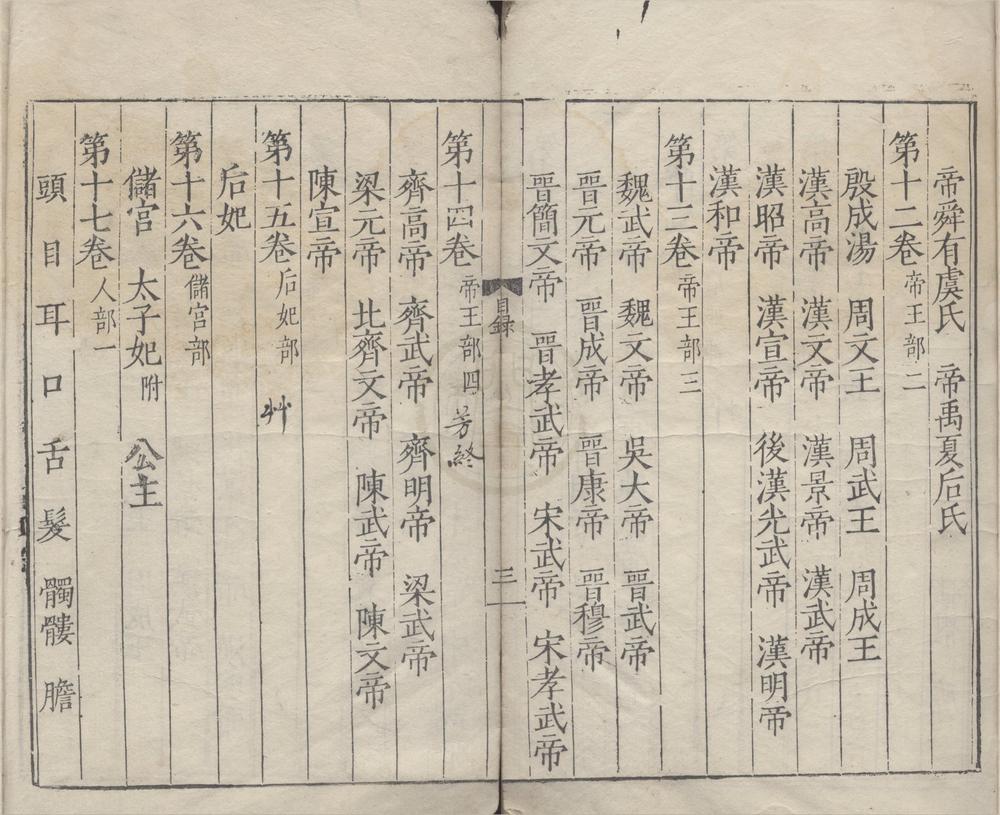 帝舜有虞氏　帝禹夏后氏
第十二卷 帝王部二
殷成湯　周文王　周武王　周成王
漢高帝　漢文帝　漢景帝　漢武帝
漢昭帝　漢宣帝　後漢光武帝　漢明帝
漢和帝
第十三卷 帝王部三
魏武帝　魏文帝　吳大帝　晉武帝
晉元帝　晉成帝　晉康帝　晉穆帝
晉簡文帝　晉孝武帝　宋武帝　宋孝武帝
目錄　三
第十四卷 帝王部四 芳終
齊高帝　齊武帝　齊明帝　梁武帝
梁元帝　北齊文帝　陳武帝　陳文帝
陳宣帝
第十五卷 后妃部
后妃
第十六卷 儲宮部
儲宮　太子妃附　公主
第十七卷 人部一
頭　目　耳　口　舌　髮　髑髏　膽